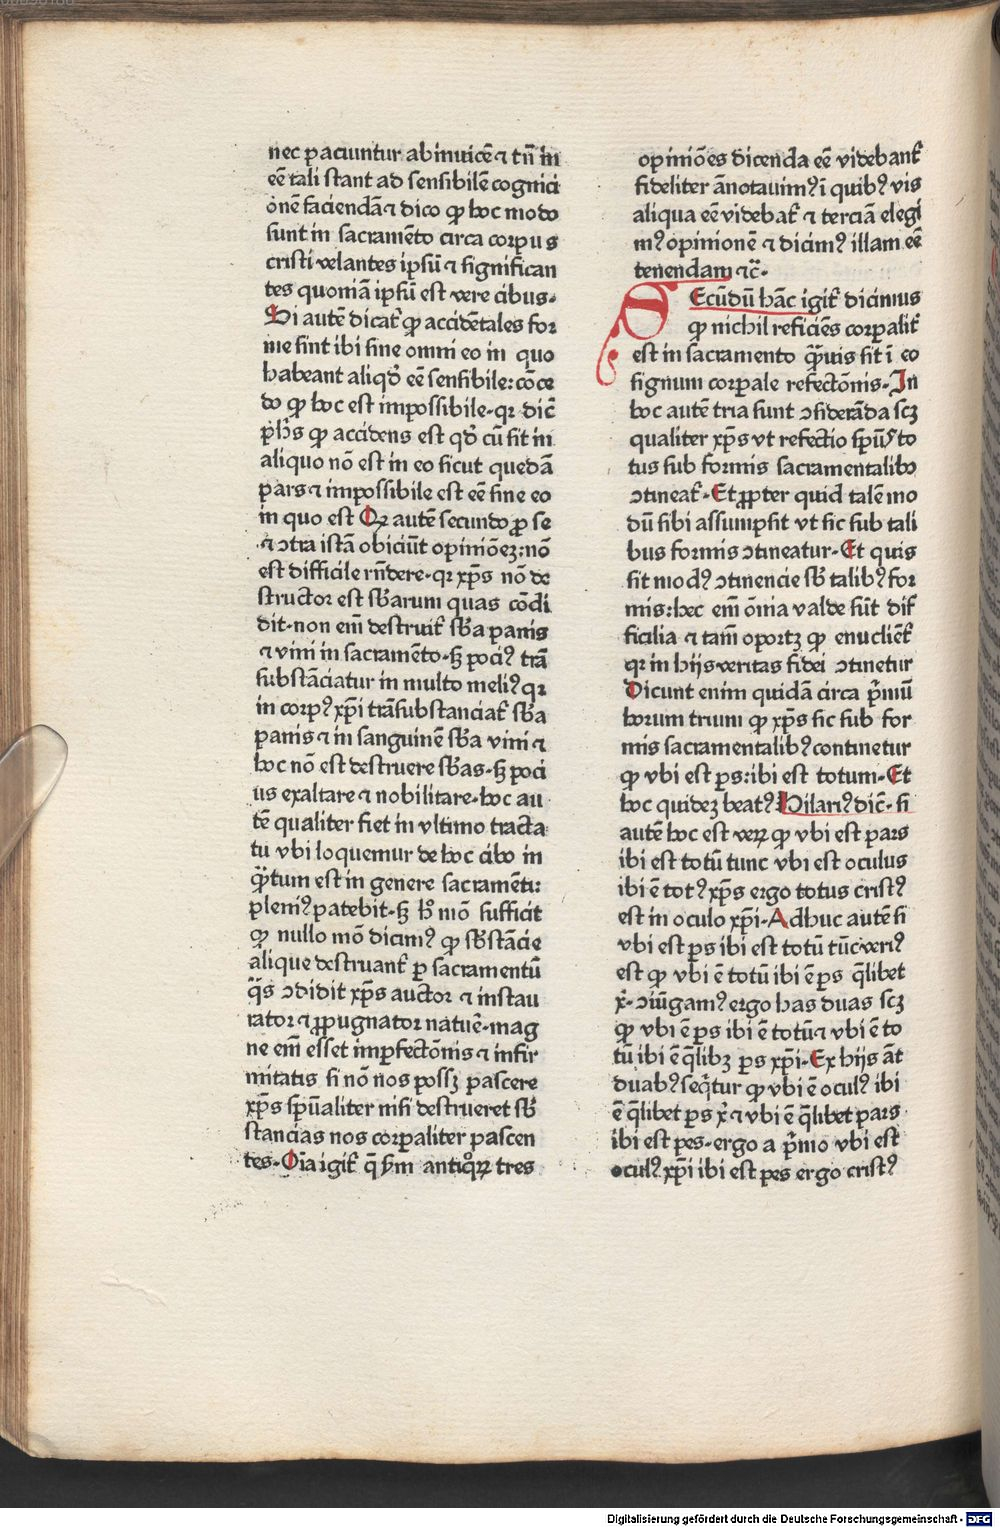 nec paciuntur abinuicē ⁊ tn̄ in
eē tali stant ad sensibilē cognici
ōnē faciendā ⁊ dico ꝙ hoc modo
sunt in sacramēto circa corpus
cristi velantes ipsū ⁊ significan
tes quoniā ipsū est vere cibus.
Si autē dicat᷑ ꝙ accidētales for
me sint ibi sine omni eo in quo
habeant aliqd̓ eē sensibile: cōce
do ꝙ hoc est impossibile. qr dic̄
ph̄s ꝙ accidens est qd̓ cū sit in
aliquo nō est in eo sicut quedā
pars ⁊ impossibile est eē sine eo
in quo est Qꝛ autē secundo ꝓ se
⁊ ↄtra istā obiciūt opiniōeꝫ: nō
est difficile rn̄dere. qr xp̄s nō de
structor est sb̄arum quas cōdi
dit. non em̄ destruit᷑ sb̄a panis
⁊ vini in sacramēto. sꝫ pociꝰ trā
substāciatur in multo meliꝰ qꝛ
in corpꝰ xp̄i trāsubstanciat᷑ sb̄a
panis ⁊ in sanguinē sb̄a vini ⁊
hoc nō est destruere sb̄as. sꝫ poci
us exaltare ⁊ nobilitare. hoc au
tē qualiter fiet in vltimo tracta
tu vbi loquemur de hoc cibo in
qᷓtum est in genere sacramēti:
pleniꝰ patebit. sꝫ hͦ mō sufficit
ꝙ nullo mō dicimꝰ ꝙ sb̄stācie
alique destruant᷑ ꝑ sacramentū
qᷓs ↄdidit xp̄s auctor ⁊ instau
rator ⁊ ꝓpugnator natuē. mag
ne em̄ esset imꝑfectōnis ⁊ infir
mitatis si nō nos possꝫ pascere
xp̄s sp̄ualiter nisi destrueret sb̄
stancias nos corꝑaliter pascen
tes. Oīa igit᷑ q̄ sm̄ antiqͦꝝ tres
opiniōes dicenda eē videbant᷑
fideliter ānotauimꝰ ī quibꝰ vis
aliqua eē videbat᷑ ⁊ terciā elegi
mꝰ opinionē ⁊ dicimꝰ illam eē
tenendam ⁊c̄.
Secūdū hāc igit᷑ dicimus
ꝙ nichil reficiēs corꝑalit᷑
est in sacramento qᷓuis sit ī eo
signum corꝑale refectōnis. In
hoc autē tria sunt ↄsiderāda scꝫ
qualiter xp̄s vt refectio sp̄ūs to
tus sub formis sacramentalibꝰ
ↄtineat᷑. Et ꝓpter quid talē mo
dū sibi assumpsit vt sic sub tali
bus formis ↄtineatur. Et quis
sit modꝰ ↄtinencie sb̄ talibꝰ for
mis: hec em̄ ōnia valde sūt dif
ficilia ⁊ tam̄ oportꝫ ꝙ enucliēt᷑
qr in hijs veritas fidei ↄtinetur
Dicunt enim quidā circa pͥmū
horum trium ꝙ xp̄s sic sub for
mis sacramentalibꝰ continetur
ꝙ vbi est ꝑs: ibi est totum. Et
hoc quideꝫ beatꝰ Hilariꝰ dic̄. si
autē hoc est veꝝ ꝙ vbi est pars
ibi est totū tunc vbi est oculus
ibi ē totꝰ xp̄s ergo totus cristꝰ
est in oculo xp̄i. Adhuc autē si
vbi est ꝑs ibi est totū tūc veriꝰ
est ꝙ vbi ē totū ibi ē ꝑs q̄libet
xͥ. ↄiūgamꝰ ergo has duas scꝫ
ꝙ vbi ē ꝑs ibi ē totū ⁊ vbi ē to
tū ibi ē q̄libꝫ ꝑs xp̄i. Ex hijs āt
duabꝰ seqͥtur ꝙ vbi ē oculꝰ ibi
ē q̄libet ꝑs xͥ ⁊ vbi ē q̄libet pars
ibi est pes. ergo a pͥmo vbi est
oculꝰ xp̄i ibi est pes ergo cristꝰ
Digitalisierung gefördert durch die Deutsche Forschungsgemeinschaft - DFG